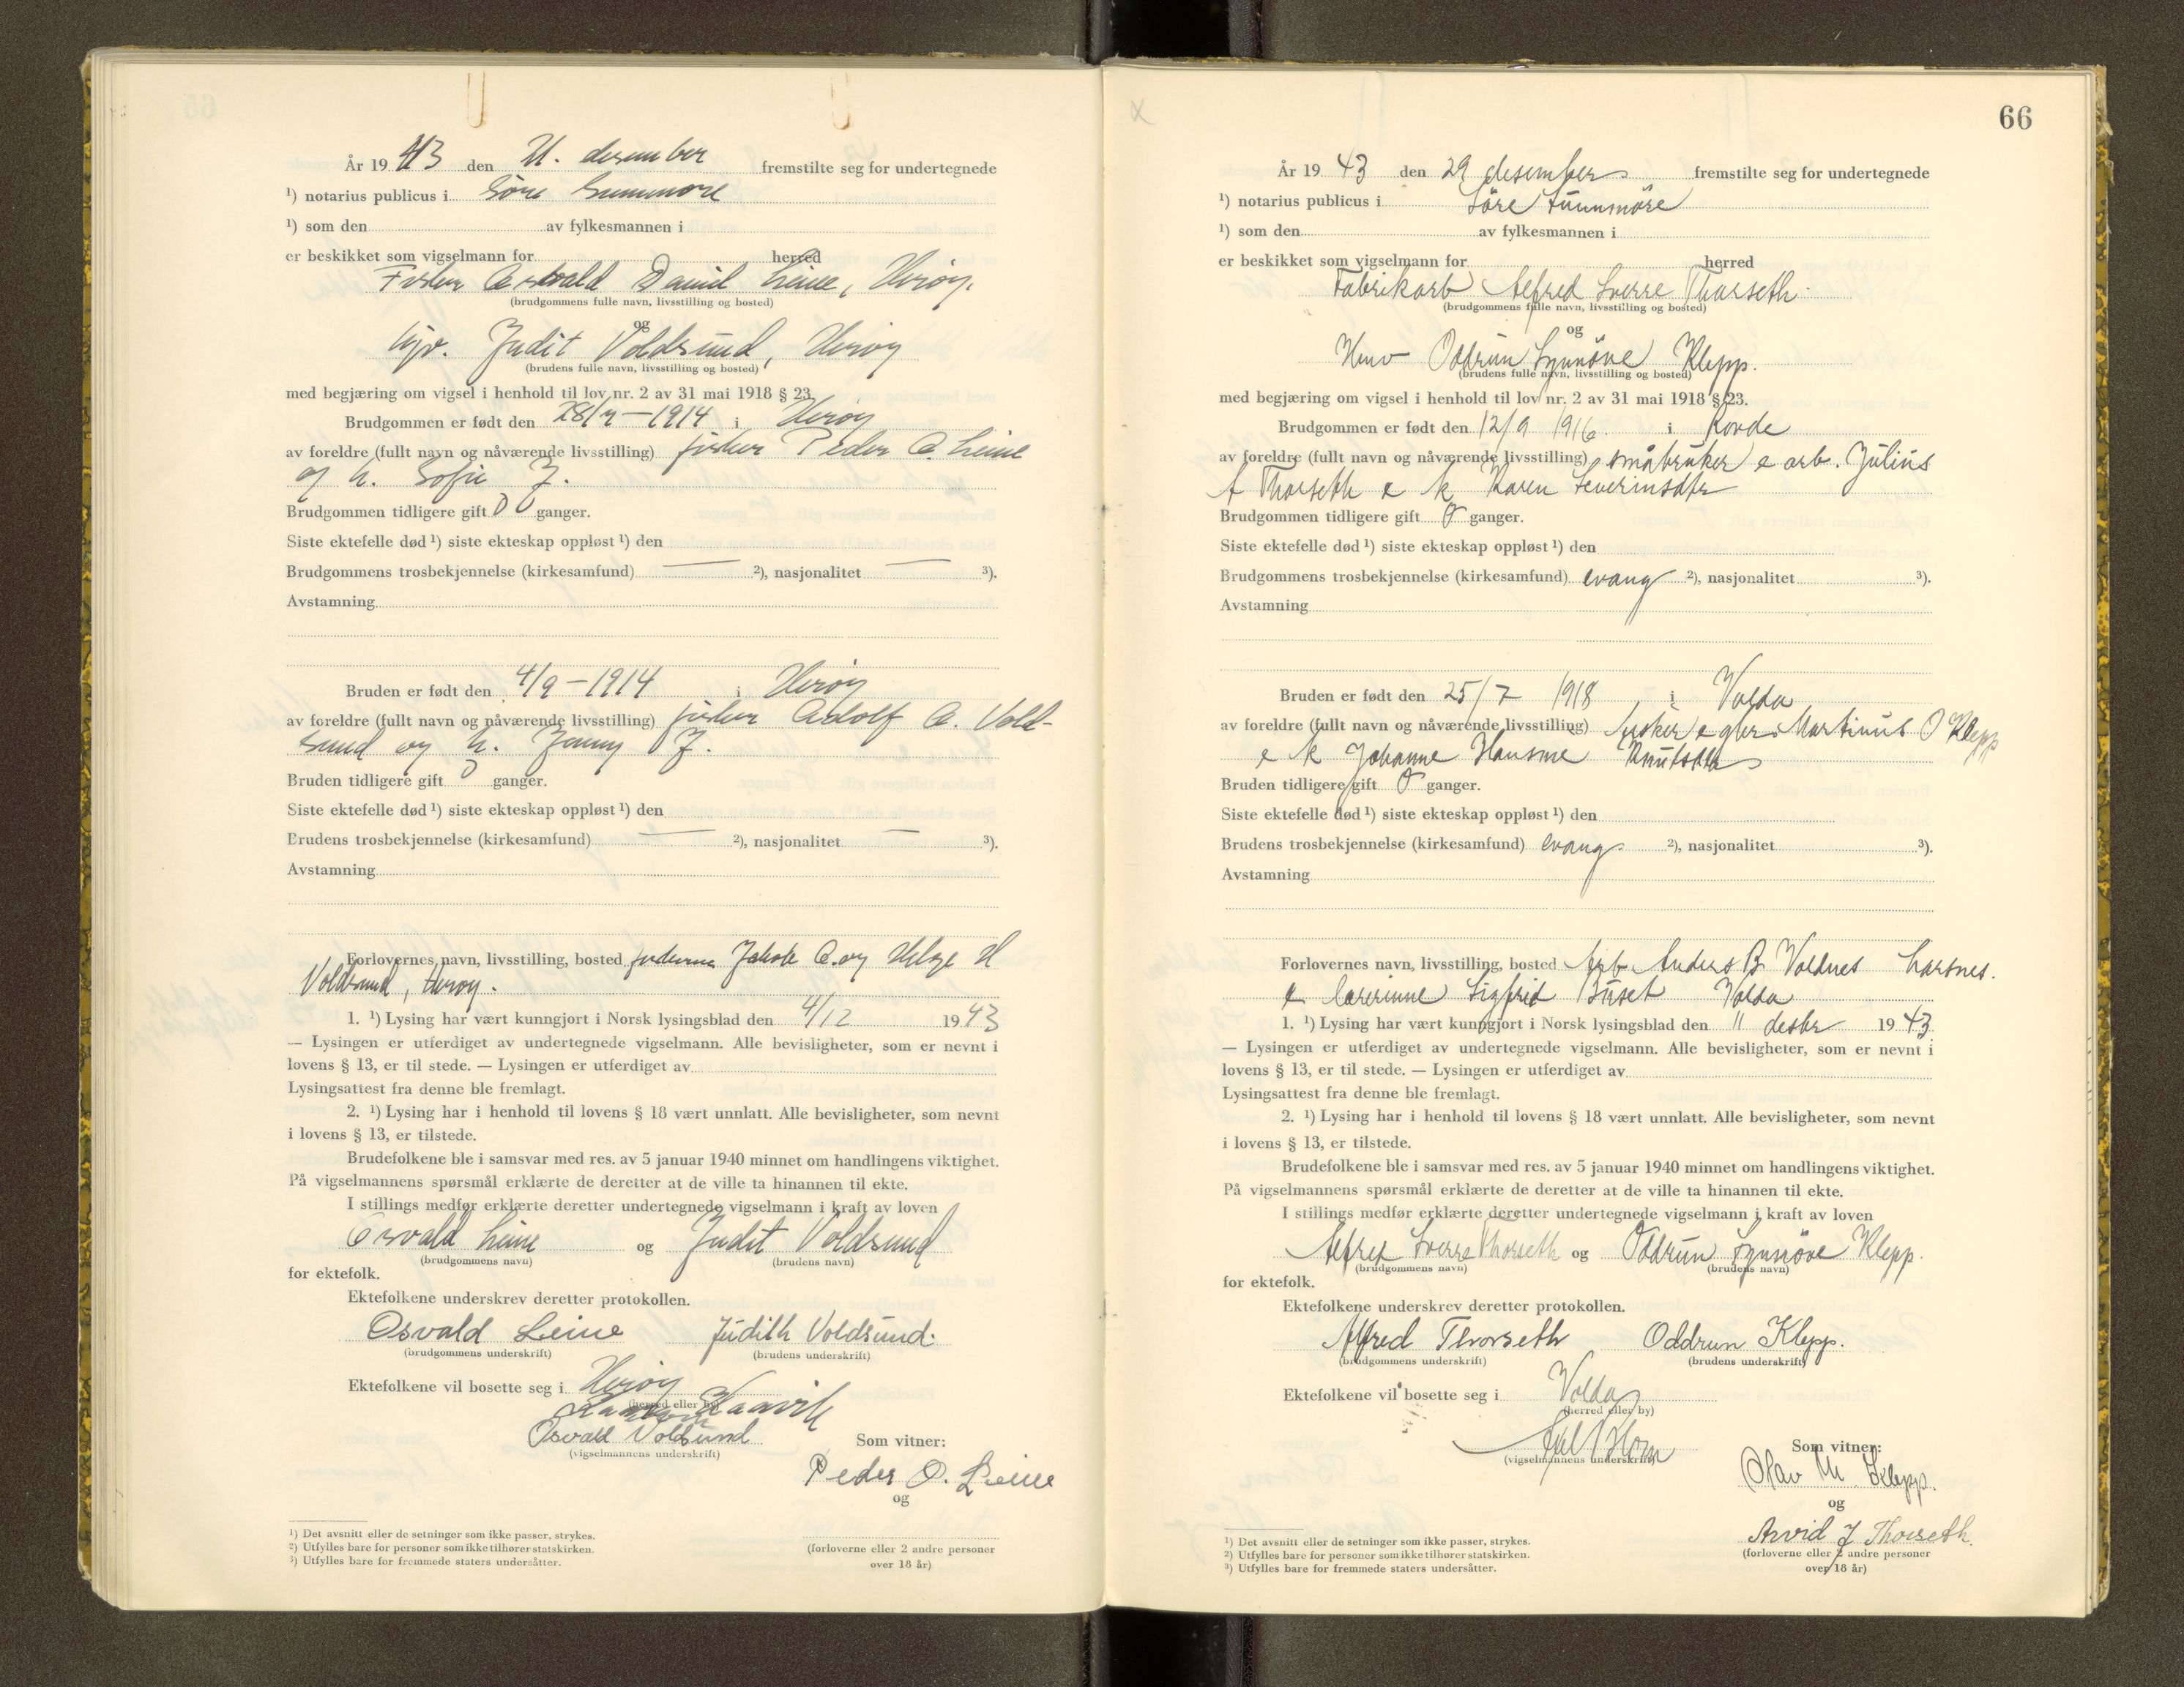 År 19 43 den 21. desember fremstilte seg for undertegnede
¹) notarius publicus i Søre Sunnmøre
¹) som den av fylkesmannen i
er beskikket som vigselmann for herred
Fisker Osvald Daniel Leine, Herøy.
(brudgommens fulle navn, livsstilling og bosted)
og
Judit Voldsund, Herøy
(brudens fulle navn, livsstilling og bosted)
med begjæring om vigsel i henhold til lov nr. 2 av 31 mai 1918 § 23.
Brudgommen er født den 28/7 – 1914 i Herøy
av foreldre (fullt navn og nåværende livsstilling) fisker Peder O. Leine
og h. Sofie J.
Brudgommen tidligere gift 0 ganger.
Siste ektefelle død ¹) siste ekteskap oppløst ¹) den
Brudgommens trosbekjennelse (kirkesamfund) — ²), nasjonalitet — ³).
Avstamning
Bruden er født den 4/9 – 1914 i Herøy
av foreldre (fullt navn og nåværende livsstilling) fisker Adolf O. Vold-
sund og h. Jenny J.
Bruden tidligere gift 0 ganger.
Siste ektefelle død ¹) siste ekteskap oppløst ¹) den
Brudens trosbekjennelse (kirkesamfund) — ²), nasjonalitet — ³).
Avstamning
Forlovernes navn, livsstilling, bosted Jakob O. og Helge H
Voldsund, Herøy.
1. ¹) Lysing har vært kunngjort i Norsk lysingsblad den 4/12 1943
— Lysingen er utferdiget av undertegnede vigselmann. Alle bevisligheter, som er nevnt i
lovens § 13, er til stede. — Lysingen er utferdiget av
Lysingsattest fra denne ble fremlagt.
2. ¹) Lysing har i henhold til lovens § 18 vært unnlatt. Alle bevisligheter, som nevnt
i lovens § 13, er tilstede.
Brudefolkene ble i samsvar med res. av 5 januar 1940 minnet om handlingens viktighet.
På vigselmannens spørsmål erklærte de deretter at de ville ta hinannen til ekte.
I stillings medfør erklærte deretter undertegnede vigselmann i kraft av loven
Osvald Leine og Judit Voldsund
(brudgommens navn) (brudens navn)
for ektefolk.
Ektefolkene underskrev deretter protokollen.
Osvald Leine Judith Voldsund.
(brudgommens underskrift) (brudens underskrift)
Ektefolkene vil bosette seg i Herøy
(herred eller by)
Haavik
Osvald Voldsund
(vigselmannens underskrift)
Som vitner:
Peder O. Leine
og
¹) Det avsnitt eller de setninger som ikke passer, strykes.
²) Utfylles bare for personer som ikke tilhører statskirken.
³) Utfylles bare for fremmede staters undersåtter.
(forloverne eller 2 andre personer
over 18 år)
66
År 19 43 den 29 desember fremstilte seg for undertegnede
¹) notarius publicus i Söre Sunnmöre
¹) som den av fylkesmannen i
er beskikket som vigselmann for herred
Fabrikarb Alfred Sverre Thorseth.
(brudgommens fulle navn, livsstilling og bosted)
og
Oddrun Synnöve Klepp.
(brudens fulle navn, livsstilling og bosted)
med begjæring om vigsel i henhold til lov nr. 2 av 31 mai 1918 § 23.
Brudgommen er født den 12/9 1916 i Rovde
av foreldre (fullt navn og nåværende livsstilling) småbruker e arb. Julius
A Thorseth e k Karen Severinsdtr
Brudgommen tidligere gift 0 ganger.
Siste ektefelle død ¹) siste ekteskap oppløst ¹) den
Brudgommens trosbekjennelse (kirkesamfund) evang ²), nasjonalitet ³).
Avstamning
Bruden er født den 25/7 1918 i Volda
av foreldre (fullt navn og nåværende livsstilling) fisker e gbr. Martinus O Klepp
e k Johanne Hansine Knutsdtr
Bruden tidligere gift 0 ganger.
Siste ektefelle død ¹) siste ekteskap oppløst ¹) den
Brudens trosbekjennelse (kirkesamfund) evang ²), nasjonalitet ³).
Avstamning
Forlovernes navn, livsstilling, bosted Arb Anders B Voldnes Larsnes.
e lærerinne Sigfrid Buset Volda
1. ¹) Lysing har vært kunngjort i Norsk lysingsblad den 11 desbr 1943
— Lysingen er utferdiget av undertegnede vigselmann. Alle bevisligheter, som er nevnt i
lovens § 13, er til stede. — Lysingen er utferdiget av
Lysingsattest fra denne ble fremlagt.
2. ¹) Lysing har i henhold til lovens § 18 vært unnlatt. Alle bevisligheter, som nevnt
i lovens § 13, er tilstede.
Brudefolkene ble i samsvar med res. av 5 januar 1940 minnet om handlingens viktighet.
På vigselmannens spørsmål erklærte de deretter at de ville ta hinannen til ekte.
I stillings medfør erklærte deretter undertegnede vigselmann i kraft av loven
Alfred Sverre Thorseth og Oddrun Synnöve Klepp.
(brudgommens navn) (brudens navn)
for ektefolk.
Ektefolkene underskrev deretter protokollen.
Alfred Thorseth Oddrun Klepp.
(brudgommens underskrift) (brudens underskrift)
Ektefolkene vil bosette seg i Volda
(herred eller by)
(vigselmannens underskrift)
Som vitner:
Olav M. Klepp.
og
Arvid J Thorseth.
¹) Det avsnitt eller de setninger som ikke passer, strykes.
²) Utfylles bare for personer som ikke tilhører statskirken.
³) Utfylles bare for fremmede staters undersåtter.
(forloverne eller 2 andre personer
over 18 år)